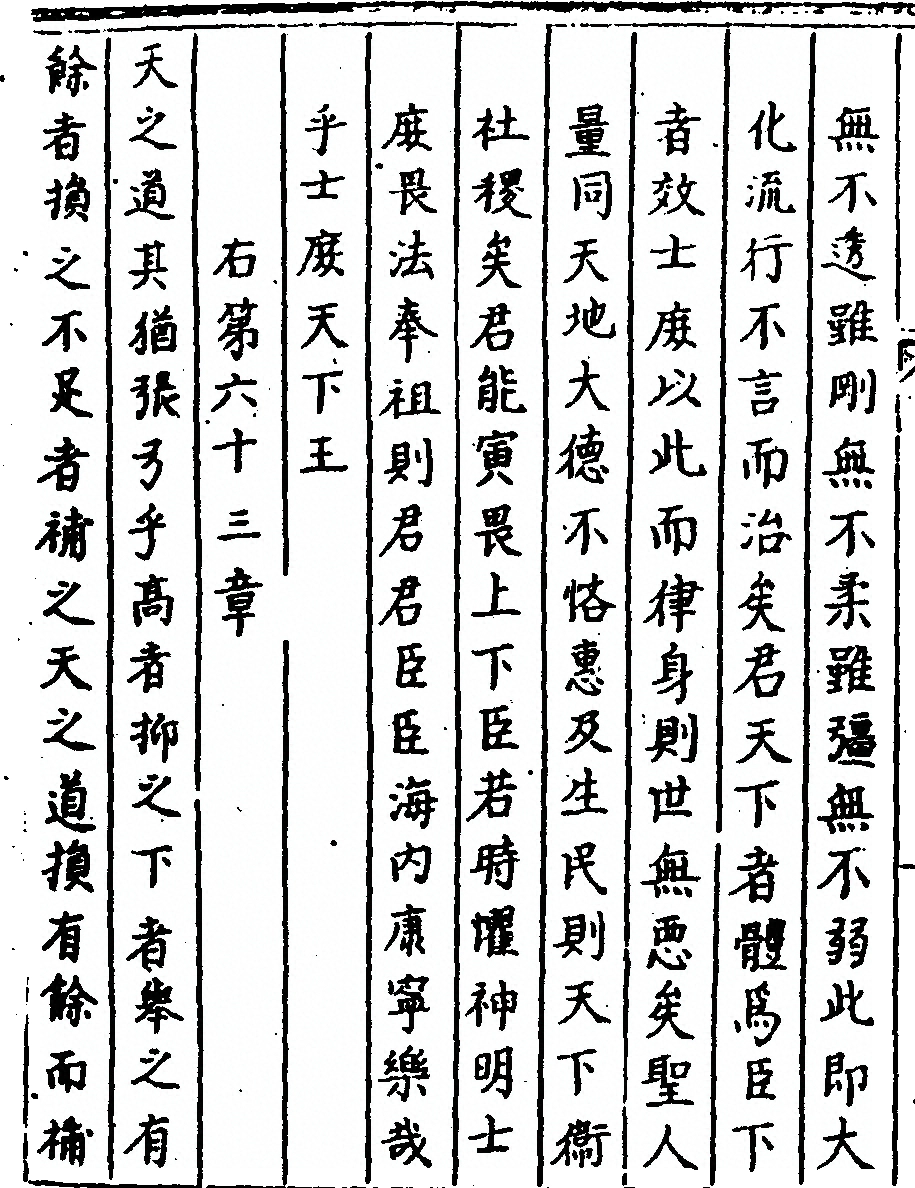 無不透雖剛無不柔雖彊無不弱此即大
化流行不言而治矣君天下者體爲臣下
者效士庻以此而律身則世無惡矣聖人
量同天地大德不悋惠及生民則天下衞
社稷矣君能寅畏上下臣若時懼神明士
庻畏法奉祖則君君臣臣海內康寧樂哉
乎士庻天下王
右第六十三章
天之道其猶張弓乎高者抑之下者舉之有
餘者損之不足者補之天之道損有餘而補